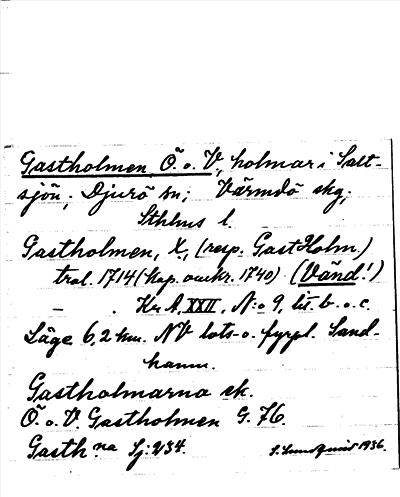 Gastholmen, Ö. o. V., holmar i Salt-
sjön; Djurö sn; Värmdö skg;
Sthlms l.
Gastholmen, X, (resp. Gast Holm.)
tral. 1714 (Kop. omkr. 1740) (Vänd!)
— . Kr. A. XXII, N:o 9, lit. b. o. c.
Läge 6,2 km. NV lots- o. fyrpl. Sand-
hamn.
Gastholmarna ek.
Ö. o. V. Gastholmen G. 76.
Gasth:na Sj: 234.
1936.